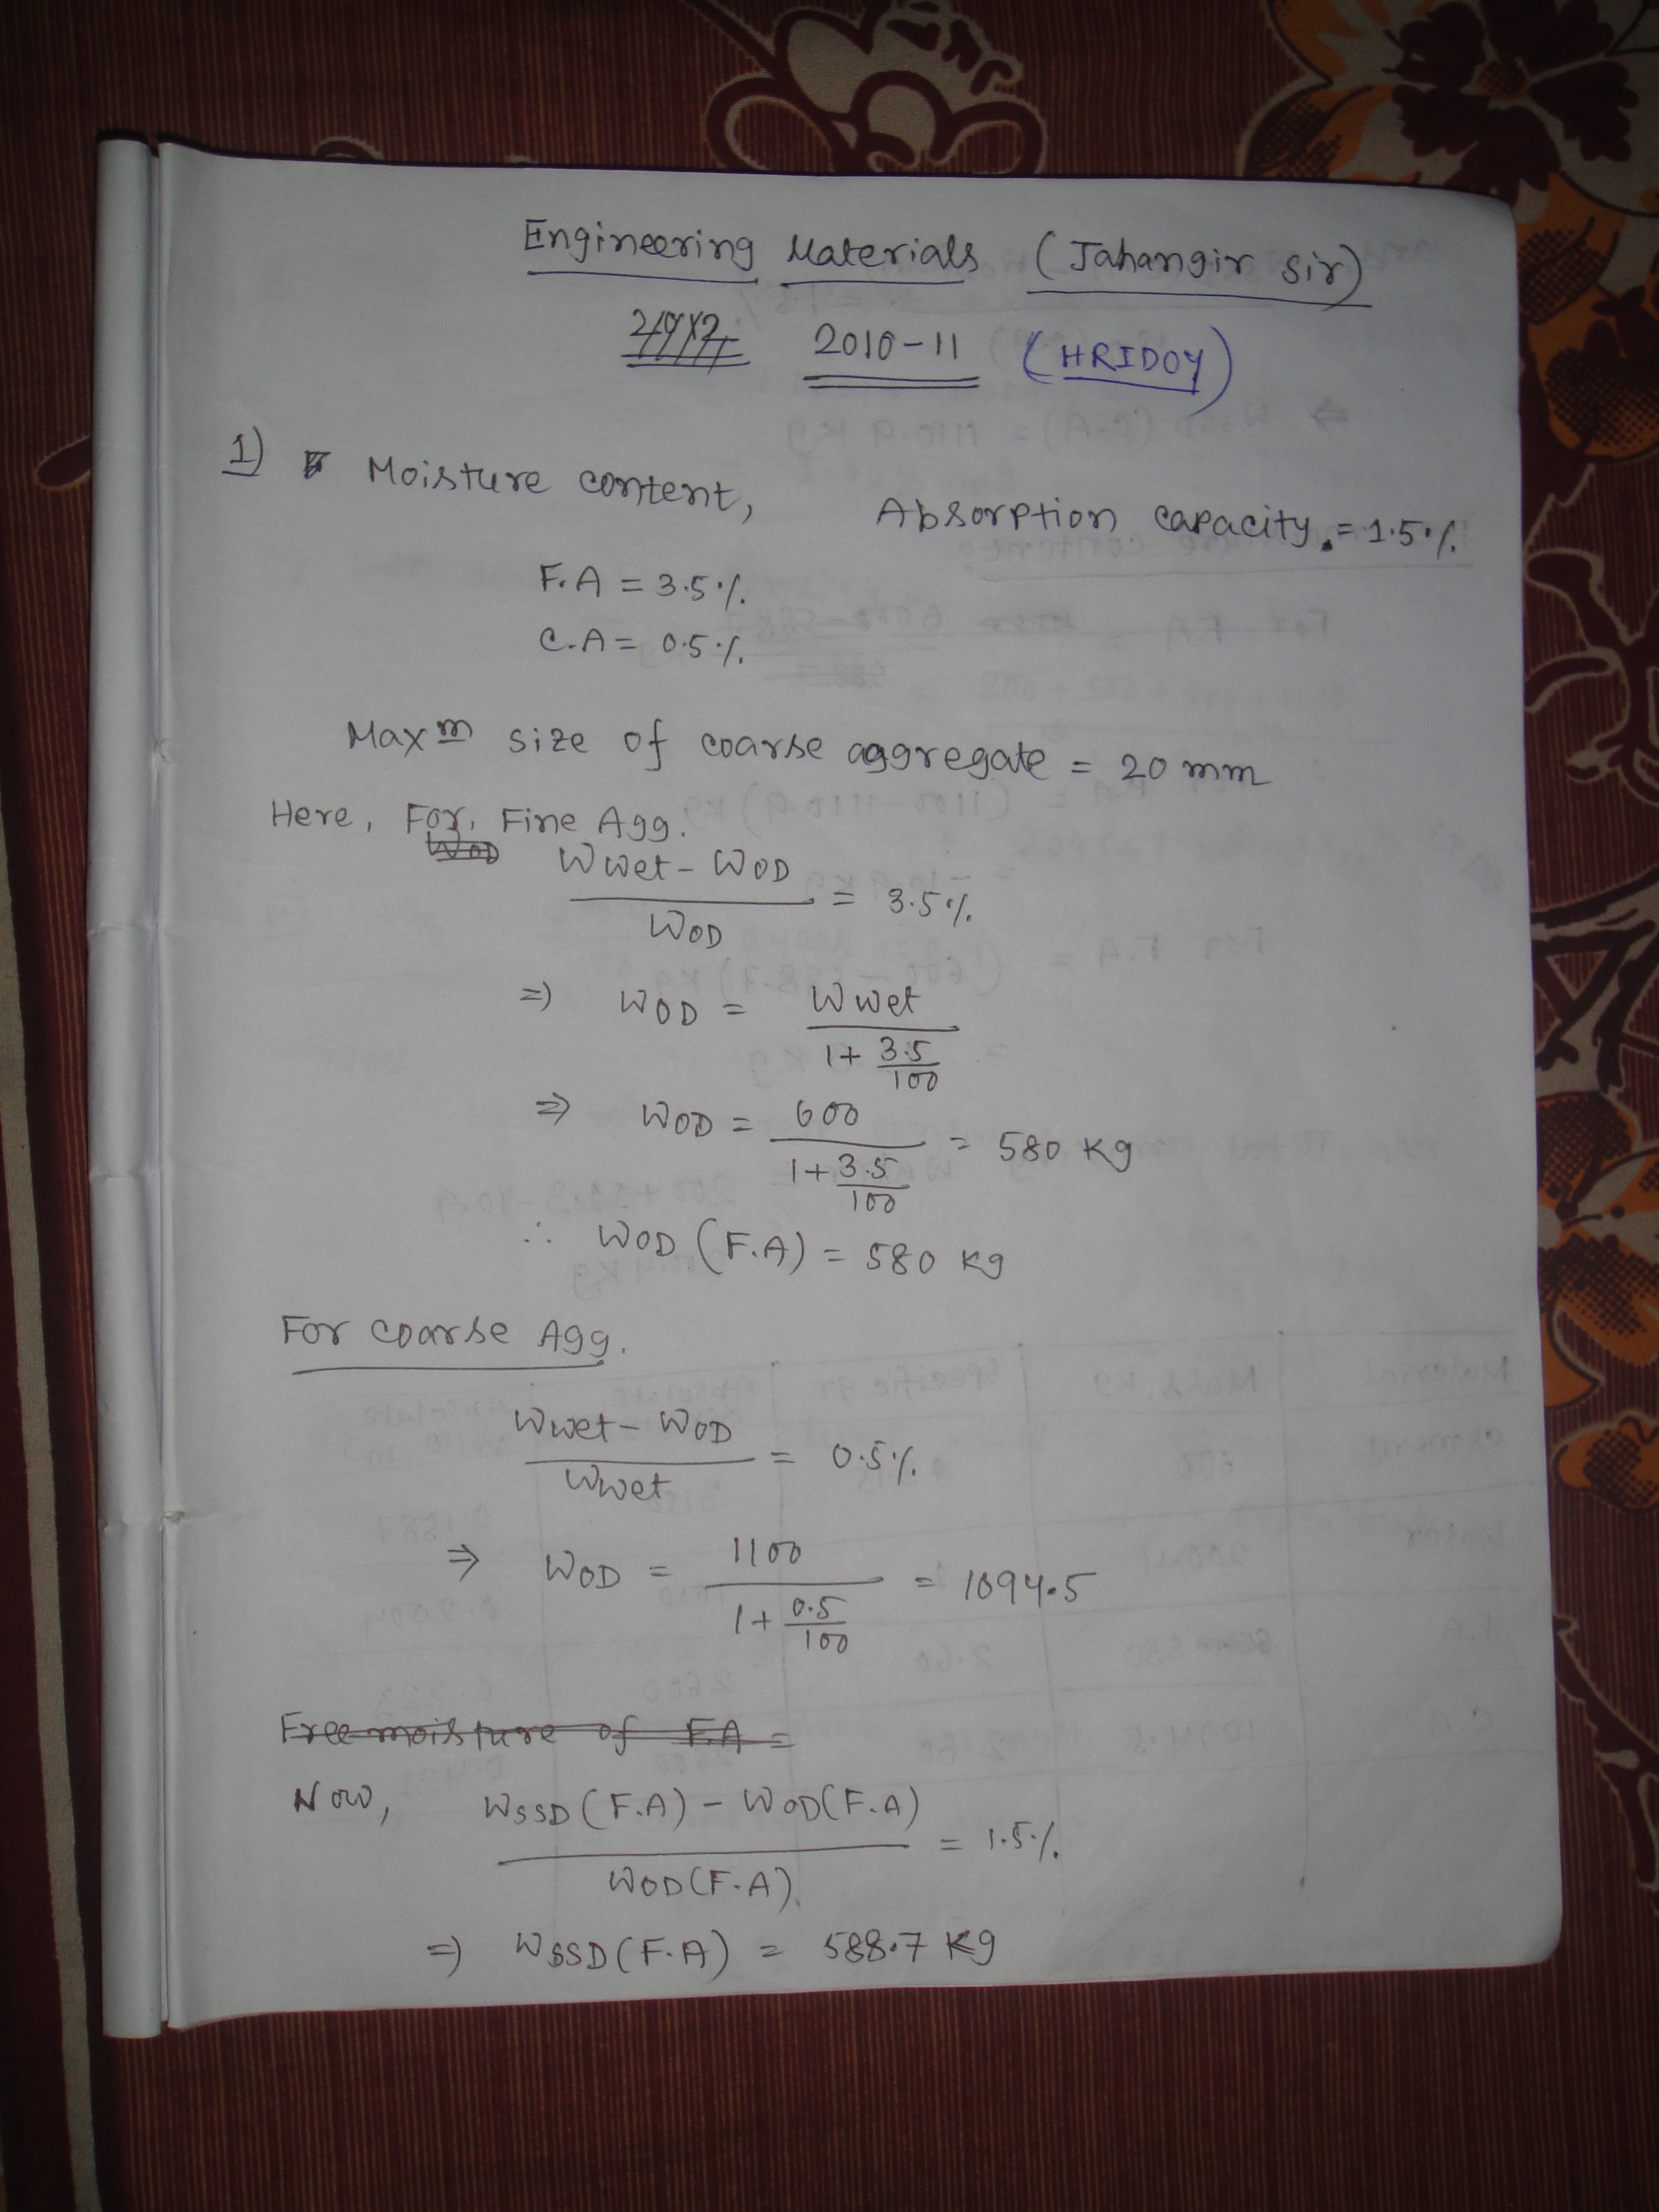 Engineering Materials (Jahangir Sir)
2010-11 (HRIDOY)
1) Moisture content, Absorption capacity = 1.5%
F.A = 3.5%
C.A = 0.5%
Maxm size of coarse aggregate = 20 mm
Here, For, Fine Agg.
WOD
(Wwet - WOD) / WOD = 3.5%
⇒ WOD = Wwet / (1 + 3.5/100)
⇒ WOD = 600 / (1 + 3.5/100) = 580 Kg
∴ WOD (F.A) = 580 Kg
For coarse Agg.
(Wwet - WOD) / Wwet = 0.5%
⇒ WOD = 1100 / (1 + 0.5/100) = 1094.5
Free moisture of F.A =
Now, (WSSD (F.A) - WOD (F.A)) / WOD (F.A) = 1.5%
⇒ WSSD (F.A) = 588.7 Kg